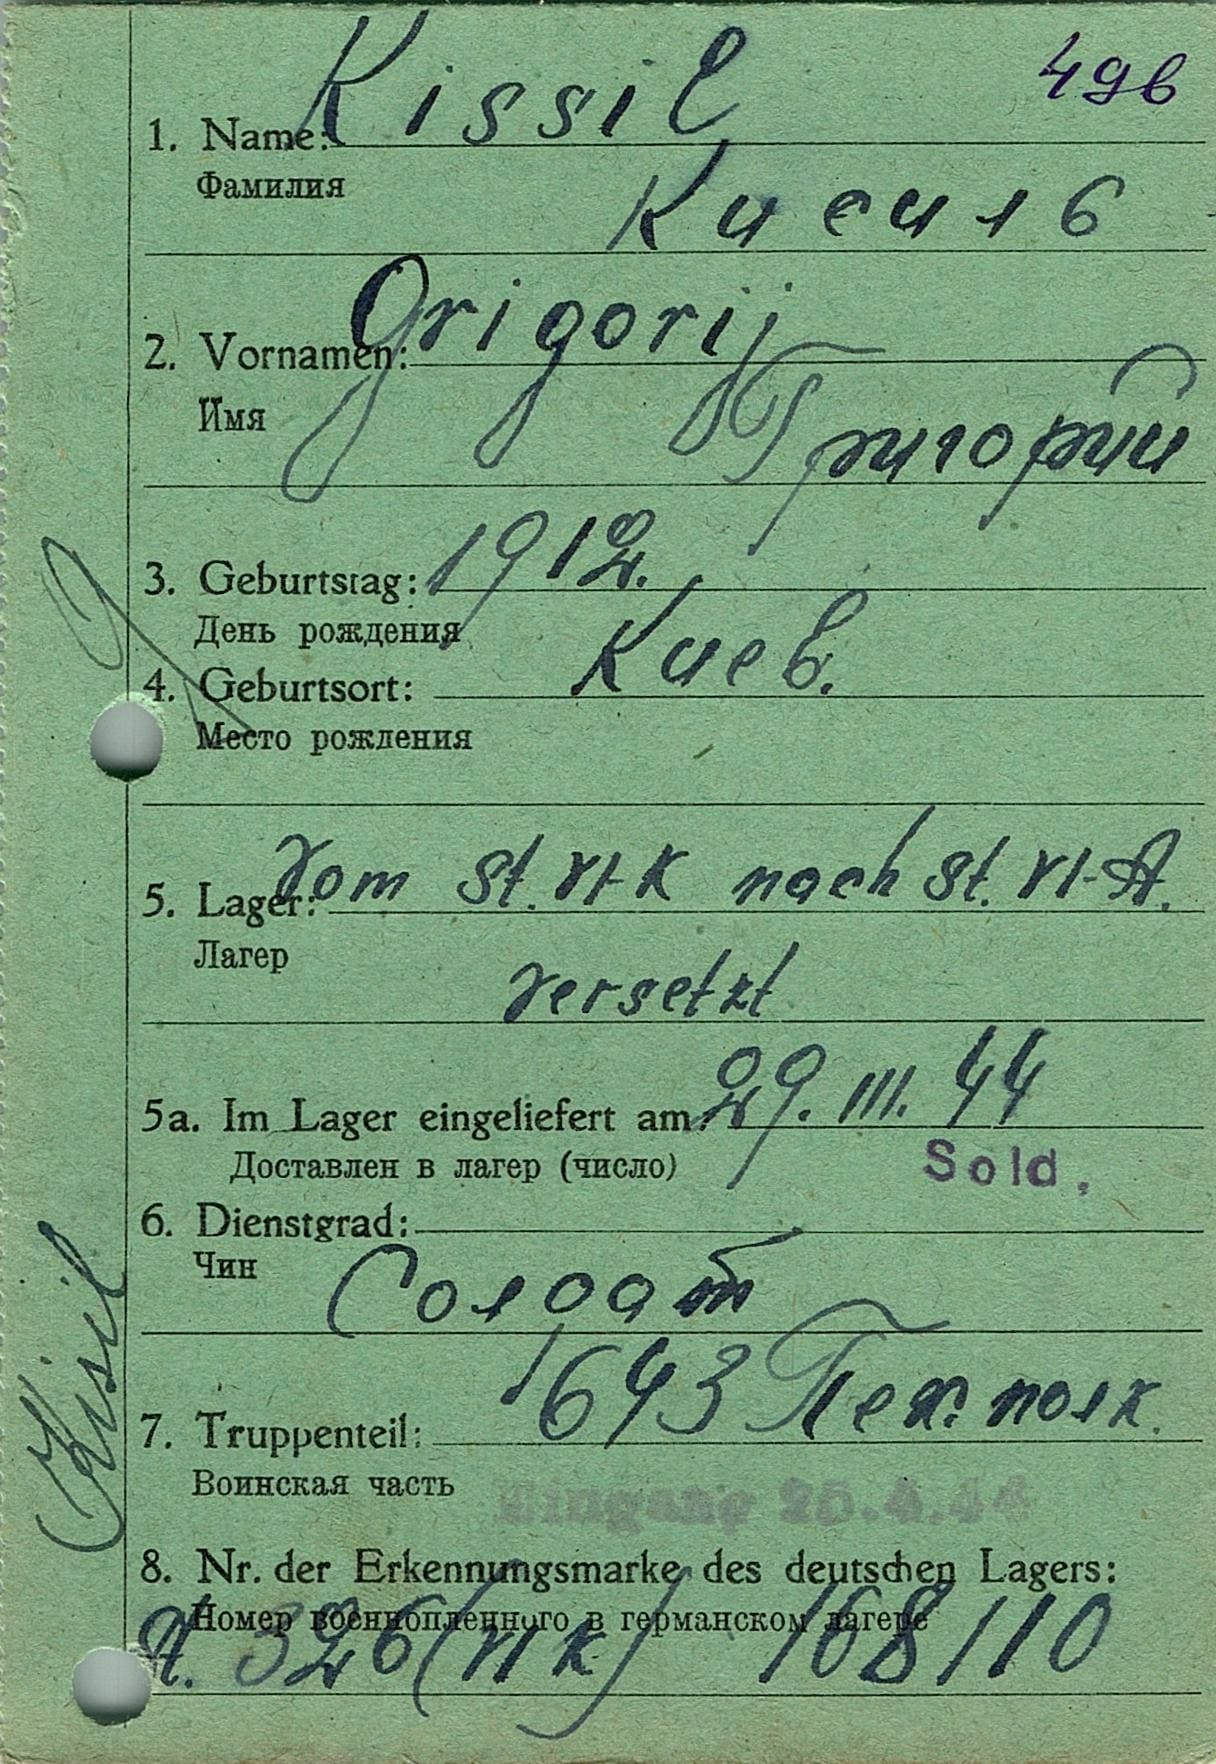 496
1. Name: Kissil
Фамилия
Кисиль
2. Vornamen: Grigorij
Имя
Григорий
3. Geburtstag: 1912.
День рождения
Киев.
4. Geburtsort:
Место рождения
5. Lager: vom St. VI-K nach St. VI-A.
Лагер
versetzt
5a. Im Lager eingeliefert am: 29. III. 44
Доставлен в лагер (число)
Sold.
6. Dienstgrad:
Чин
Солдат
7. Truppenteil: 1643 Пех. полк.
Воинская часть
Eingang 25.4.44
8. Nr. der Erkennungsmarke des deutschen Lagers:
Номер военнопленного в германском лагере
St. 326 (VI K) 168110
Kisil